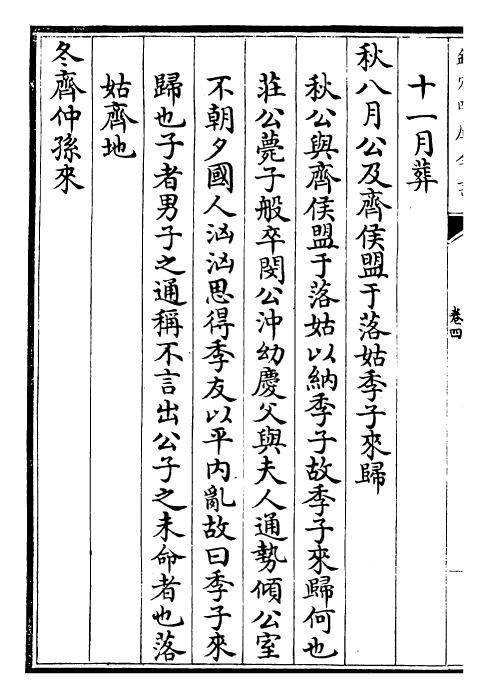 卷四
十一月葬
秋八月公及齊侯盟于落姑季子來歸
秋公與齊侯盟于落姑以納季子故季子來歸何也
莊公薨子般卒閔公沖幼慶父與夫人通勢傾公室
不朝夕國人汹汹思得季友以平内亂故曰季子來
歸也子者男子之通稱不言出公子之未命者也落
姑齊地
冬齊仲孫來